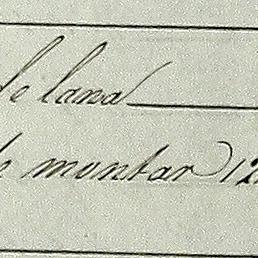 de lana
de montar 12